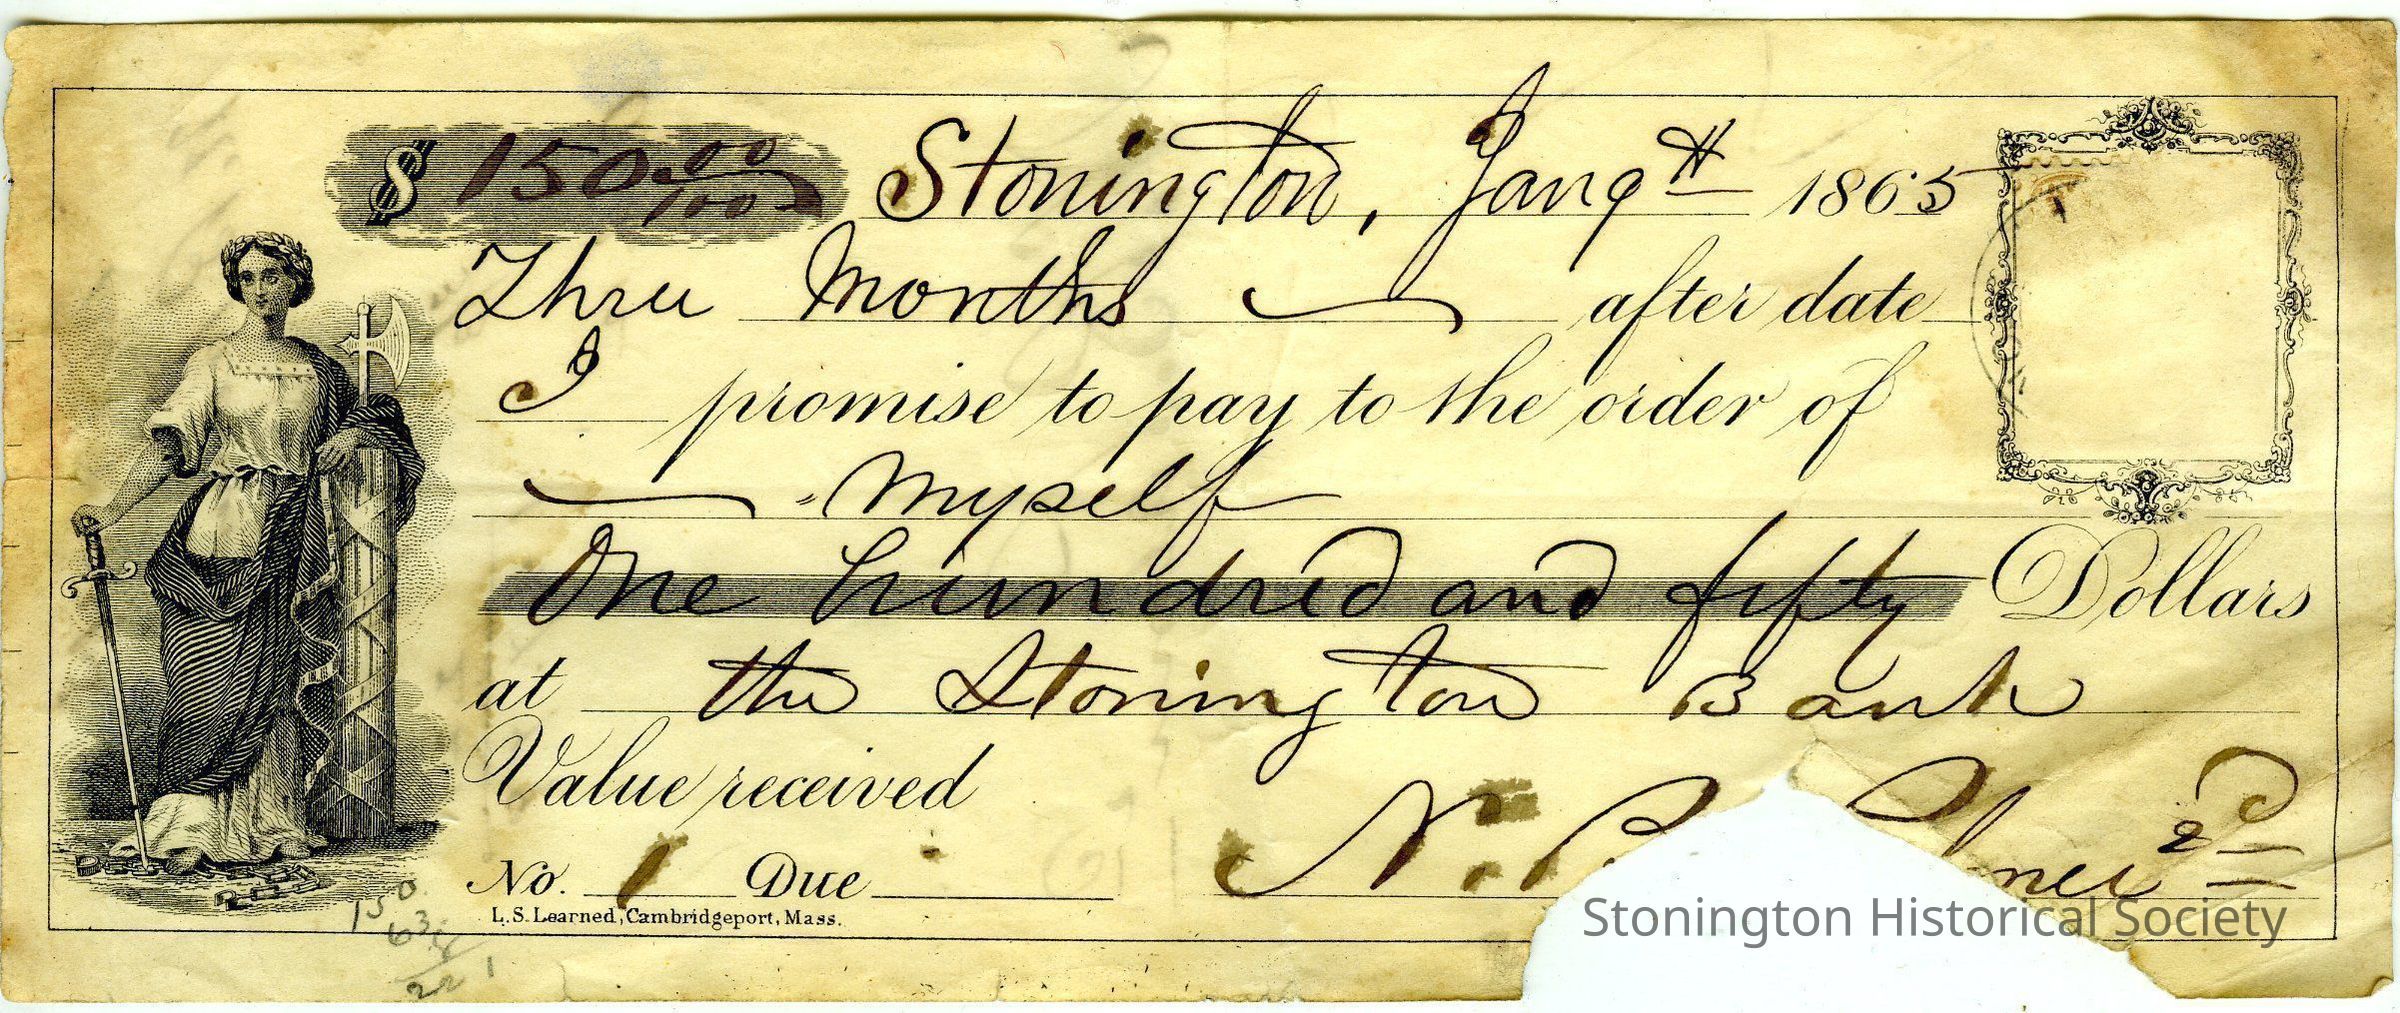 $ 150 00/100 Stonington, Jan 9th 1865
Three Months after date
I promise to pay to the order of
Myself
One hundred and fifty Dollars
at the Stonington Bank
Value received
N. P.
2d
No. 1 Due
L. S. Learned, Cambridgeport, Mass.
150
Stonington Historical Society